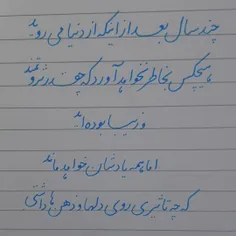 چند سال بعد از اینکه از دنیا می روید
هیچکس بخاطر نخواهد آورد که چقدر ثروتمند
و زیبا بوده اید
اما همه یادشان خواهد ماند
که چه تاثیری روی دلها و ذهن ها داشتی